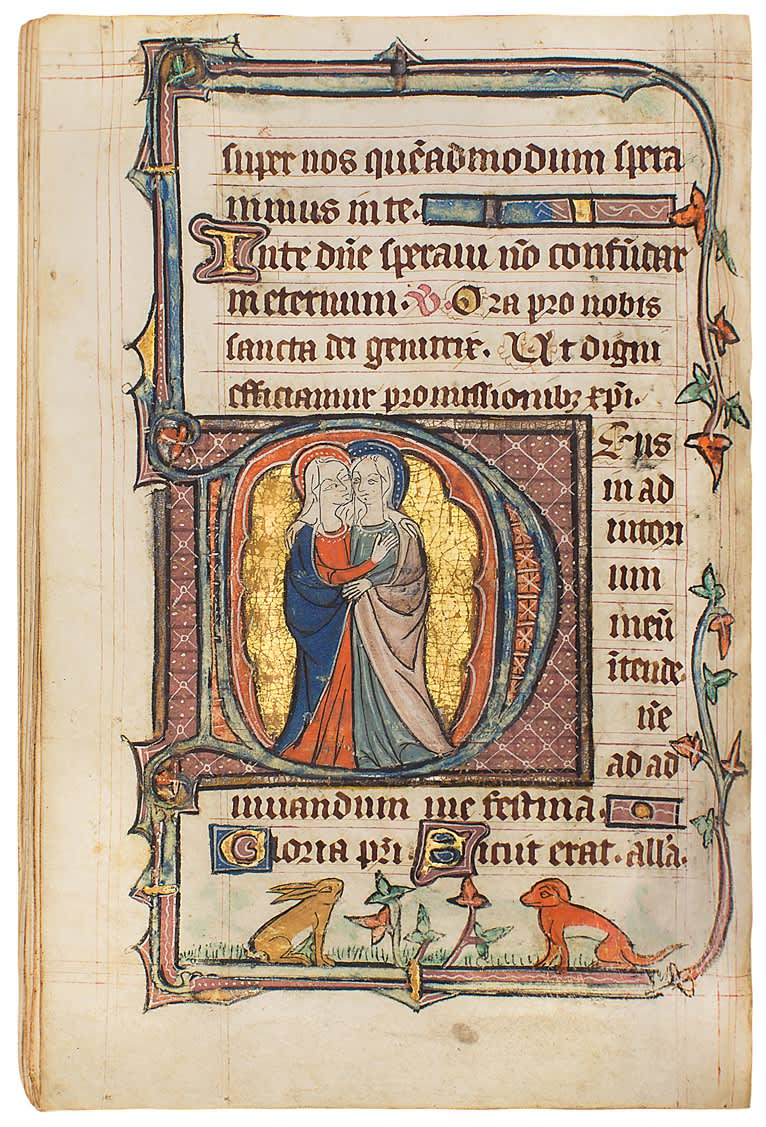 super nos quēadmodum spera
uimus in te.
In te dn̄e speraui nō confūdar
in eternum. V. Ora pro nobis
sancta dei genitrix. Ut digni
efficiamur promissionibꝫ xp̄i.
Deus
in ad
iutori
um
meū
ītende.
dn̄e
ad ad
iuuandum me festina.
Gloria pr̄i. Sicut erat. all'a.